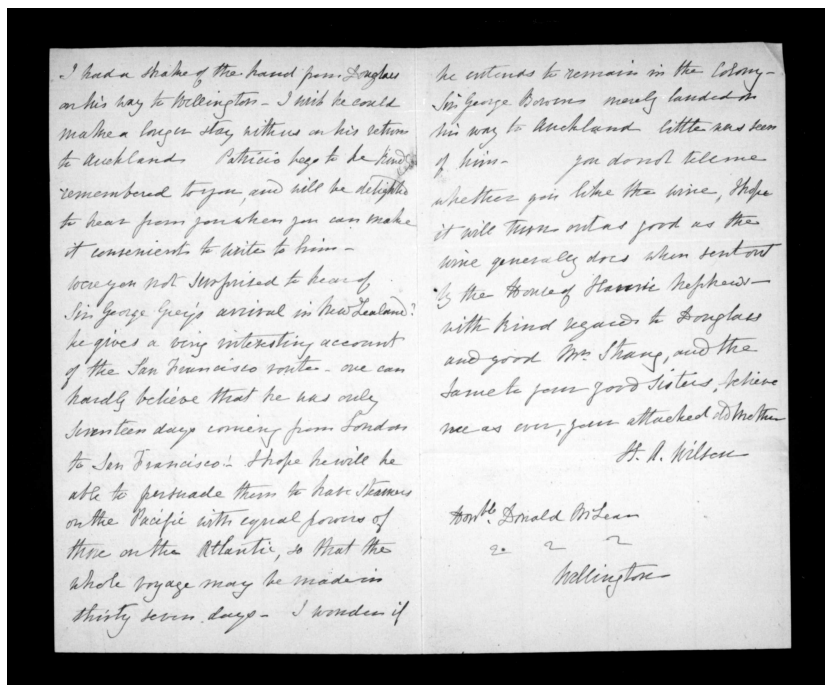 I had a shake of the hand from Douglas
on his way to Wellington - I wish he could
make a longer stay with us on his return
to Auckland Patricio begs to be kindly
remembered to you, and will be delighted
to hear from you when you can make
it convenient to write to him -
were you not surprised to hear of
Sir George Grey's arrival in New Zealand?
he gives a very interesting account
of the San Francisco route - one can
hardly believe that he was only
seventeen days coming from London
to San Francisco! - I hope he will be
able to persuade them to have steamers
on the Pacific with equal powers of
those on the Atlantic, so that the
whole voyage may be made in
thirty seven days - I wonder if
he intends to remain in the Colony -
Sir George Bowen merely landed on
his way to Auckland little was seen
of him - you do not tell me
whether you like the wine, I hope
it will turn out as good as the
wine generally does when sent out
by the House of Nephews -
with kind regards to Douglas
and good Mrs Strang, and the
same to your good sisters, believe
me as ever, your attached old mother
H. A. Wilson
Honble. Donald McLean
Wellington